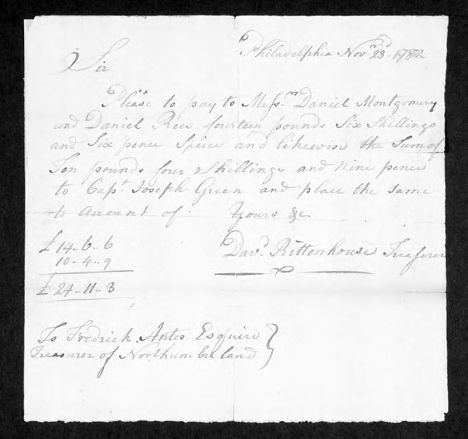 Philadelphia Novr. 23. 1782
Sir
Please to pay to Messrs. Daniel Montgomery
and Daniel Rees fourteen pounds Six Shillings
and Six pence Specie and likewise the Sum of
Ten pounds four Shillings and Nine pence
to Capt. Joseph Green and place the same
to account of. Yours &c
£ 14..6..6
Davd. Rittenhouse Treasurer
10..4..9
£ 24..11..3
To Fredrick Antes Esquire
Treasurer of Northumberland